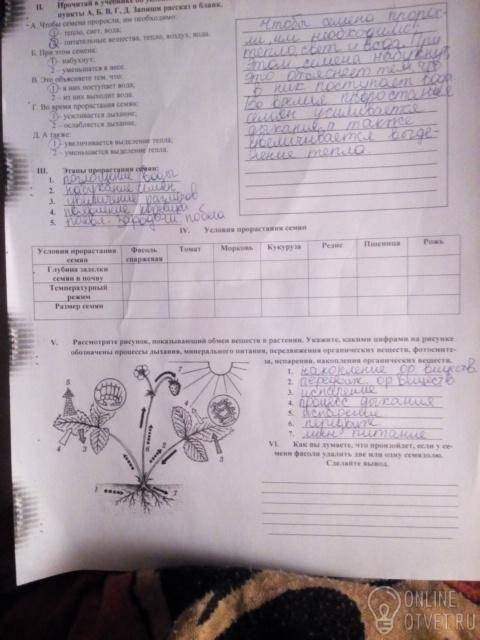 II. Прочитай в учебнике об
пункты А, Б, В, Г, Д. Запиши рассказ в бланк.
А. Чтобы семена проросли, им необходимо:
1- тепло, свет, вода;
2- питательные вещества, тепло, воздух, вода.
Б. При этом семена:
1- набухнут;
2 - уменьшатся в весе.
В. Это объясняется тем, что:
1- в них поступает вода;
2- из них выходит вода.
Г. Во время прорастания семян:
1- усиливается дыхание;
2- ослабляется дыхание.
Д. А также:
1- увеличивается выделение тепла;
2- уменьшается выделение тепла.
Чтобы семена пророс-
ли, им необходимо:
тепло, свет и вода. При
этом семена набухнут,
это объясняет тем, что
в них поступает вода.
Во время прорастания
семян усиливается
дыхание, а также
увеличивается выде-
ление тепла
III. Этапы прорастания семян:
1. поглощение воды
2. набухание семян
3. увеличение размеров
4. появление корешка
5. побега
IV. Условия прорастания семян
Условия прорастания семян Фасоль спаржевая Томат Морковь Кукуруза Редис Пшеница Рожь
Глубина заделки семян в почву
Температурный режим
Размер семян
V. Рассмотрите рисунок, показывающий обмен веществ в растении. Укажите, какими цифрами на рисунке
обозначены процессы дыхания, минерального питания, передвижения органических веществ, фотосинте-
за, испарения, накопления органических веществ.
1. накопление ор веществ
2. ор веществ
3. испарение
4. процесс дыхания
5. испарение
6.
7. мин питание
VI. Как вы думаете, что произойдет, если у се-
мени фасоли удалить две или одну семядолю.
Сделайте вывод.
ONLINE
OTVET.RU